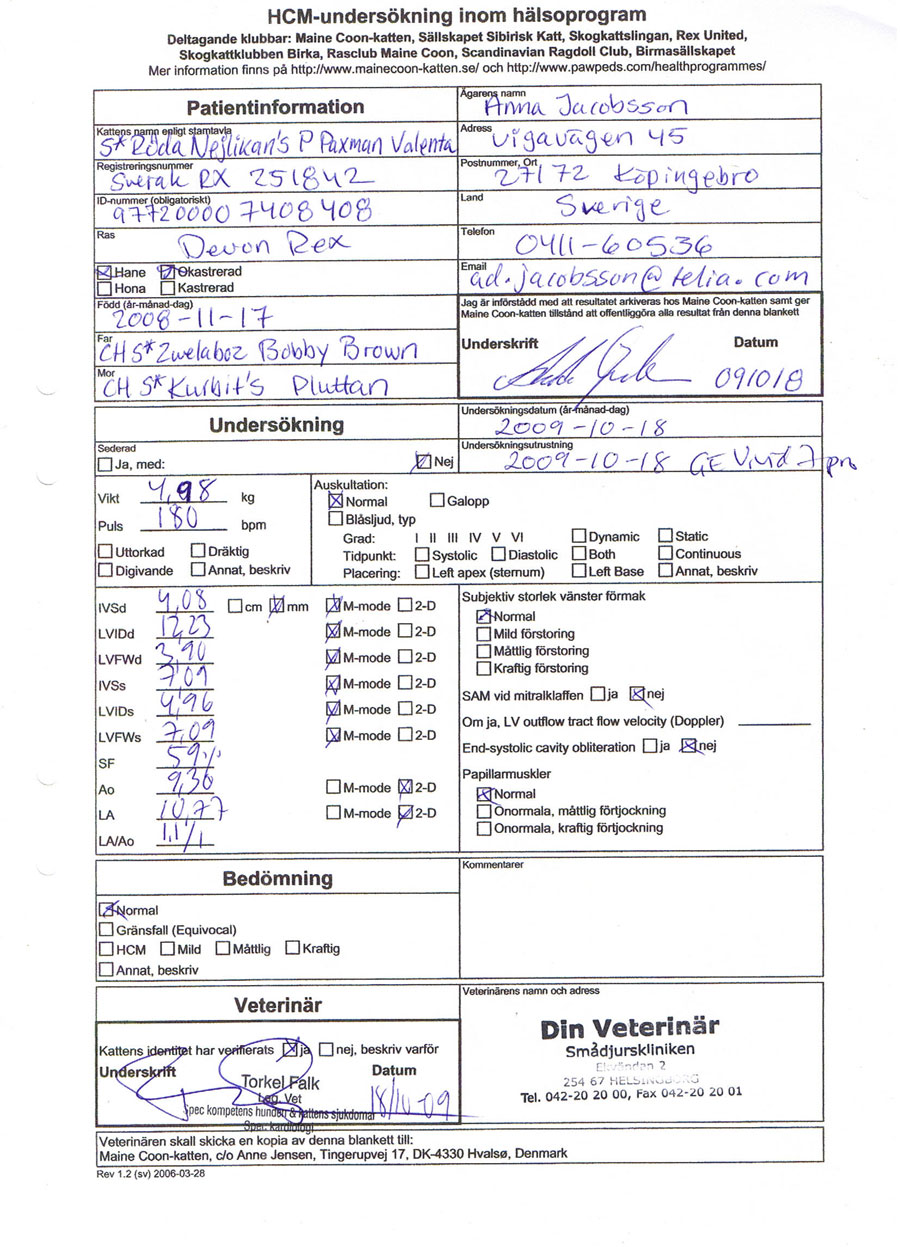 HCM-undersökning inom hälsoprogram
Deltagande klubbar: Maine Coon-katten, Sällskapet Sibirisk Katt, Skogkattslingan, Rex United,
Skogkattklubben Birka, Rasclub Maine Coon, Scandinavian Ragdoll Club, Birmasällskapet
Mer information finns på http://www.mainecoon-katten.se/ och http://www.pawpeds.com/healthprogrammes/
Patientinformation
Kattens namn enligt stamtavla
S* Röda Nejlikan's P Paxman Valenta
Registreringsnummer
Sverak RX 251842
ID-nummer (obligatoriskt)
977200007408408
Ras
Devon Rex
Hane Okastrerad
Hona Kastrerad
Född (år-månad-dag)
2008-11-17
Far
CH S* Zwelaboz Bobby Brown
Mor
CH S* Kurbit's Pluttan
Ägarens namn
Anna Jacobsson
Adress
Vigavägen 45
Postnummer, Ort
27172 Köpingebro
Land
Sverige
Telefon
0411-60536
Email
ad.jacobsson@telia.com
Jag är införstådd med att resultatet arkiveras hos Maine Coon-katten samt ger
Maine Coon-katten tillstånd att offentliggöra alla resultat från denna blankett
Underskrift Datum
091018
Undersökning
Sederad
Ja, med: Nej
Undersökningsdatum (år-månad-dag)
2009-10-18
Undersökningsutrustning
2009-10-18 GE Vivid 7 pro
Vikt 4,98 kg
Puls 180 bpm
Uttorkad Dräktig
Digivande Annat, beskriv
Auskultation:
Normal Galopp
Blåsljud, typ
Grad: I II III IV V VI Dynamic Static
Tidpunkt: Systolic Diastolic Both Continuous
Placering: Left apex (sternum) Left Base Annat, beskriv
IVSd 4,08 cm mm M-mode 2-D
LVIDd 12,23 M-mode 2-D
LVFWd 3,90 M-mode 2-D
IVSs 7,09 M-mode 2-D
LVIDs 4,96 M-mode 2-D
LVFWs 7,09 M-mode 2-D
SF 59%
Ao 9,36 M-mode 2-D
LA 10,77 M-mode 2-D
LA/Ao 1,1/1
Subjektiv storlek vänster förmak
Normal
Mild förstoring
Måttlig förstoring
Kraftig förstoring
SAM vid mitralklaffen ja nej
Om ja, LV outflow tract flow velocity (Doppler)
End-systolic cavity obliteration ja nej
Papillarmuskler
Normal
Onormala, måttlig förtjockning
Onormala, kraftig förtjockning
Bedömning
Normal
Gränsfall (Equivocal)
HCM Mild Måttlig Kraftig
Annat, beskriv
Kommentarer
Veterinär
Kattens identitet har verifierats ja nej, beskriv varför
Underskrift Datum
Torkel Falk
Leg. Vet
Spec kompetens hundens & kattens sjukdomar
Spec. kardiologi
18/10-09
Veterinärens namn och adress
Din Veterinär
Smådjurskliniken
Elevändan 2
254 67 HELSINGBORG
Tel. 042-20 20 00, Fax 042-20 20 01
Veterinären skall skicka en kopia av denna blankett till:
Maine Coon-katten, c/o Anne Jensen, Tingerupvej 17, DK-4330 Hvalsø, Denmark
Rev 1.2 (sv) 2006-03-28